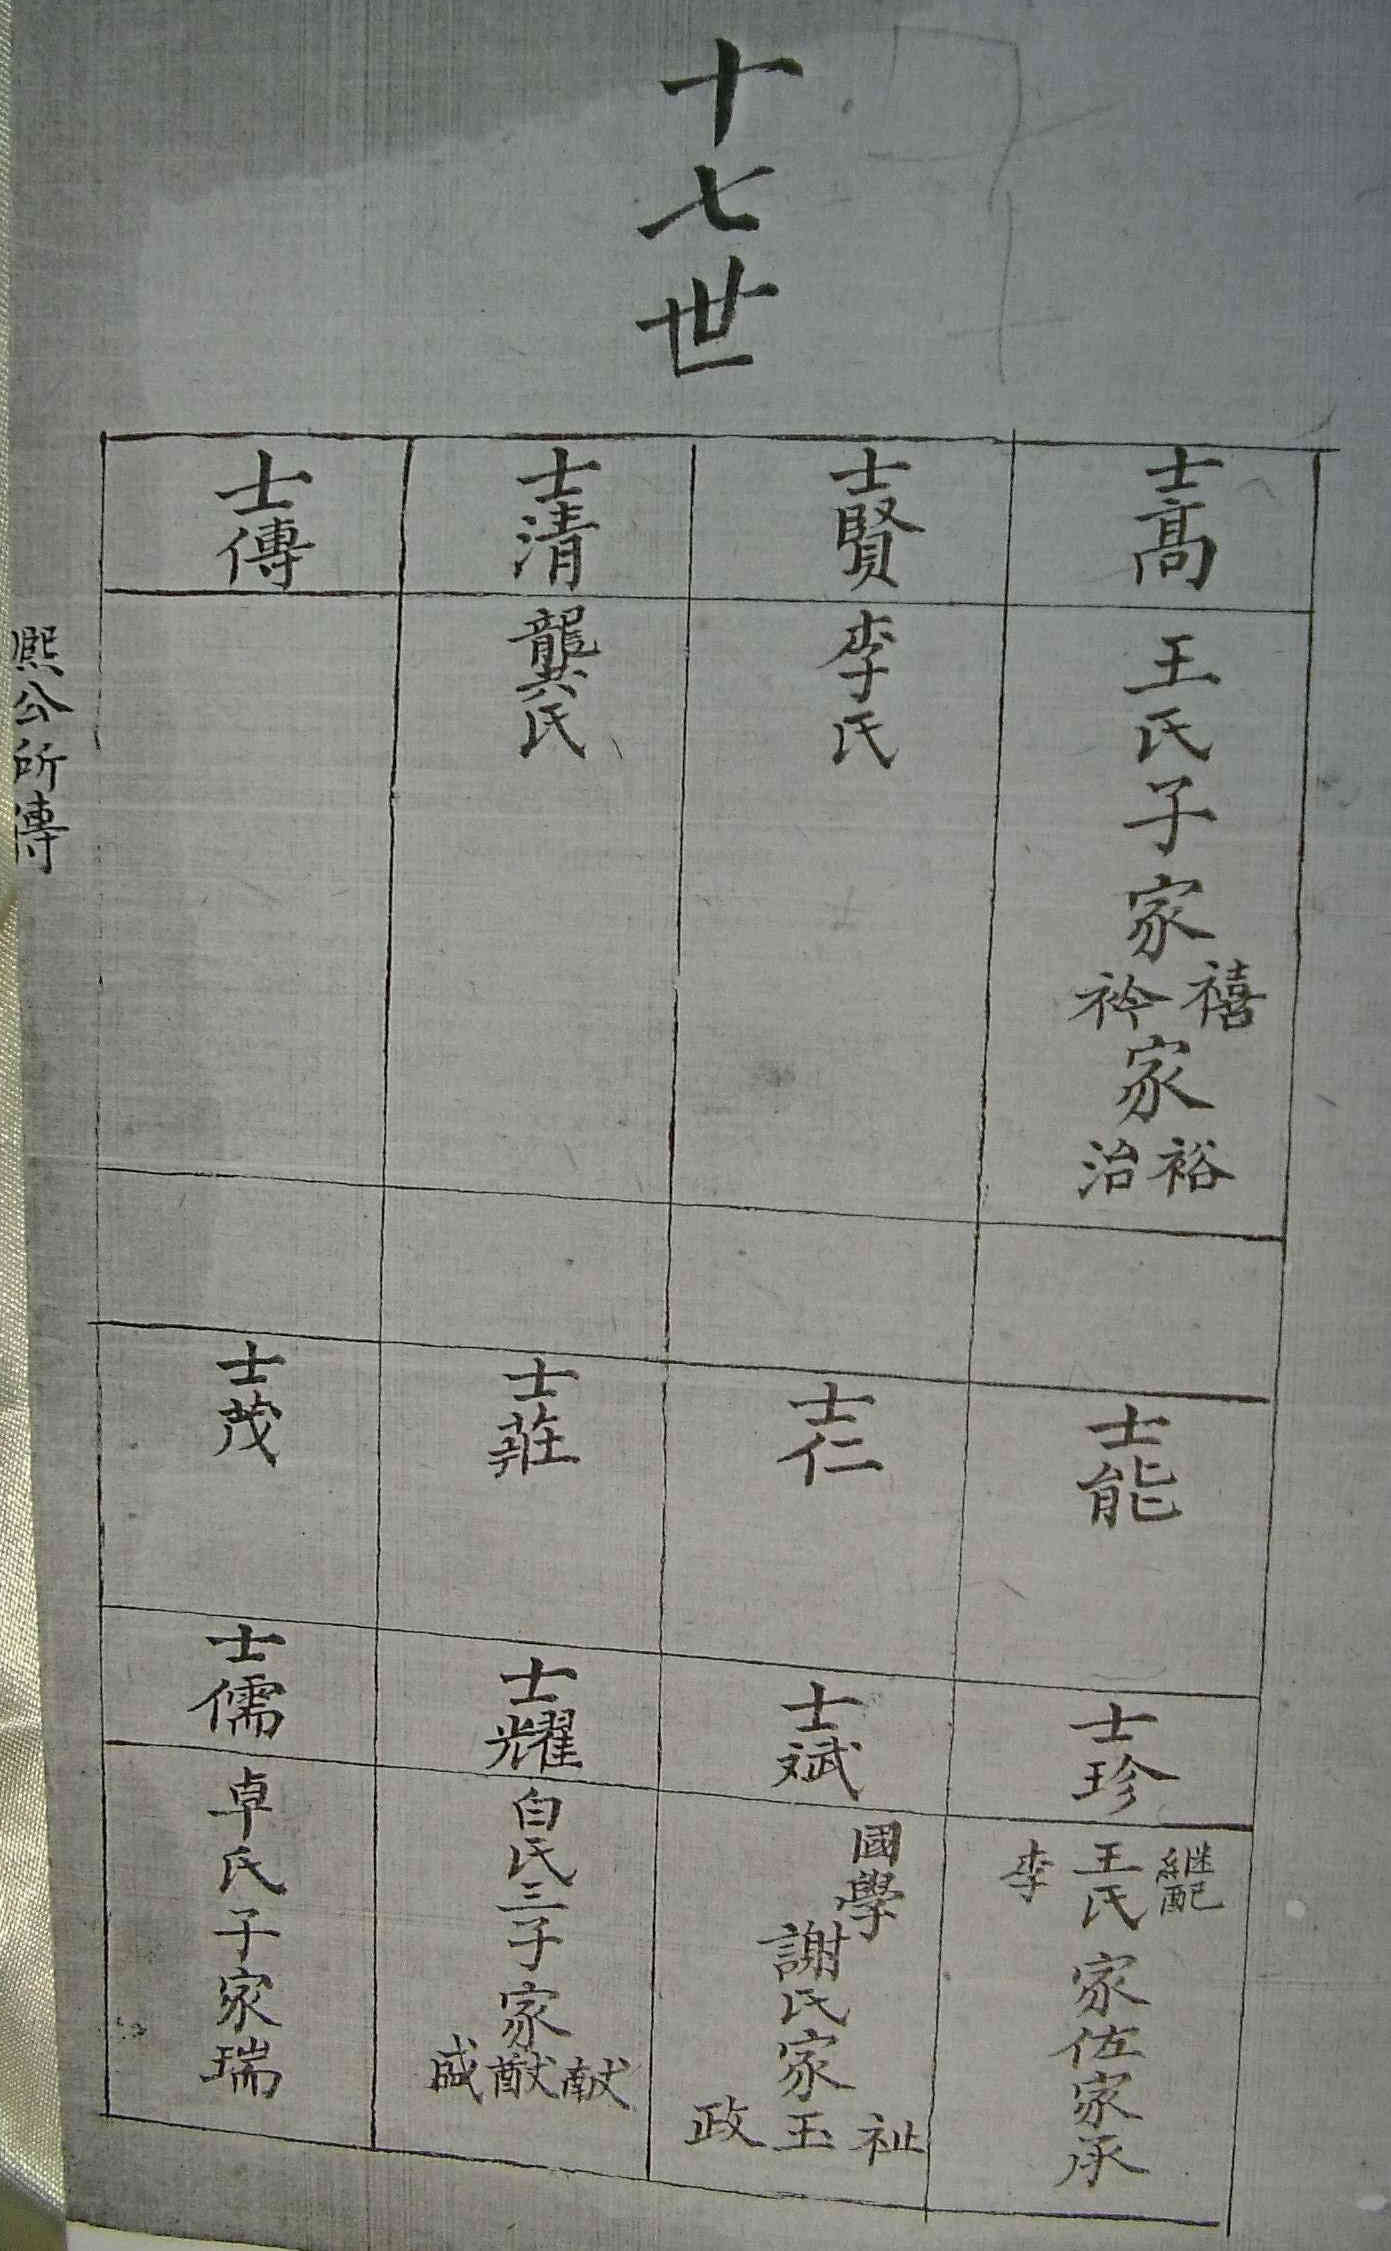 十七世
士高
王氏子家
禧
衿
家
裕
治
士賢
李氏
士清
龔氏
士傳
士能
士仁
士莊
士茂
士珍
継配
王氏家佐家承
李
士斌
國學
謝氏家
祉
玉
政
士耀
白氏三子家
献
猷
盛
士儒
卓氏子家瑞
熙公所傳